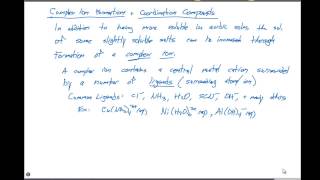 Complex Ion Formation + Coordination Compounds
In addition to being more soluble in acidic solns the sol.
of some slightly soluble salts can be increased through
formation of a complex ion.
A complex ion contains a central metal cation surrounded
by a number of ligands (surrounding
Common Ligands: Cl⁻, NH₃, H₂O, SCN⁻, OH⁻ + many others
Ex: Cu(NH₃)₄²⁺(aq) Ni(H₂O)₆²⁺(aq), Al(OH)₄⁻(aq)